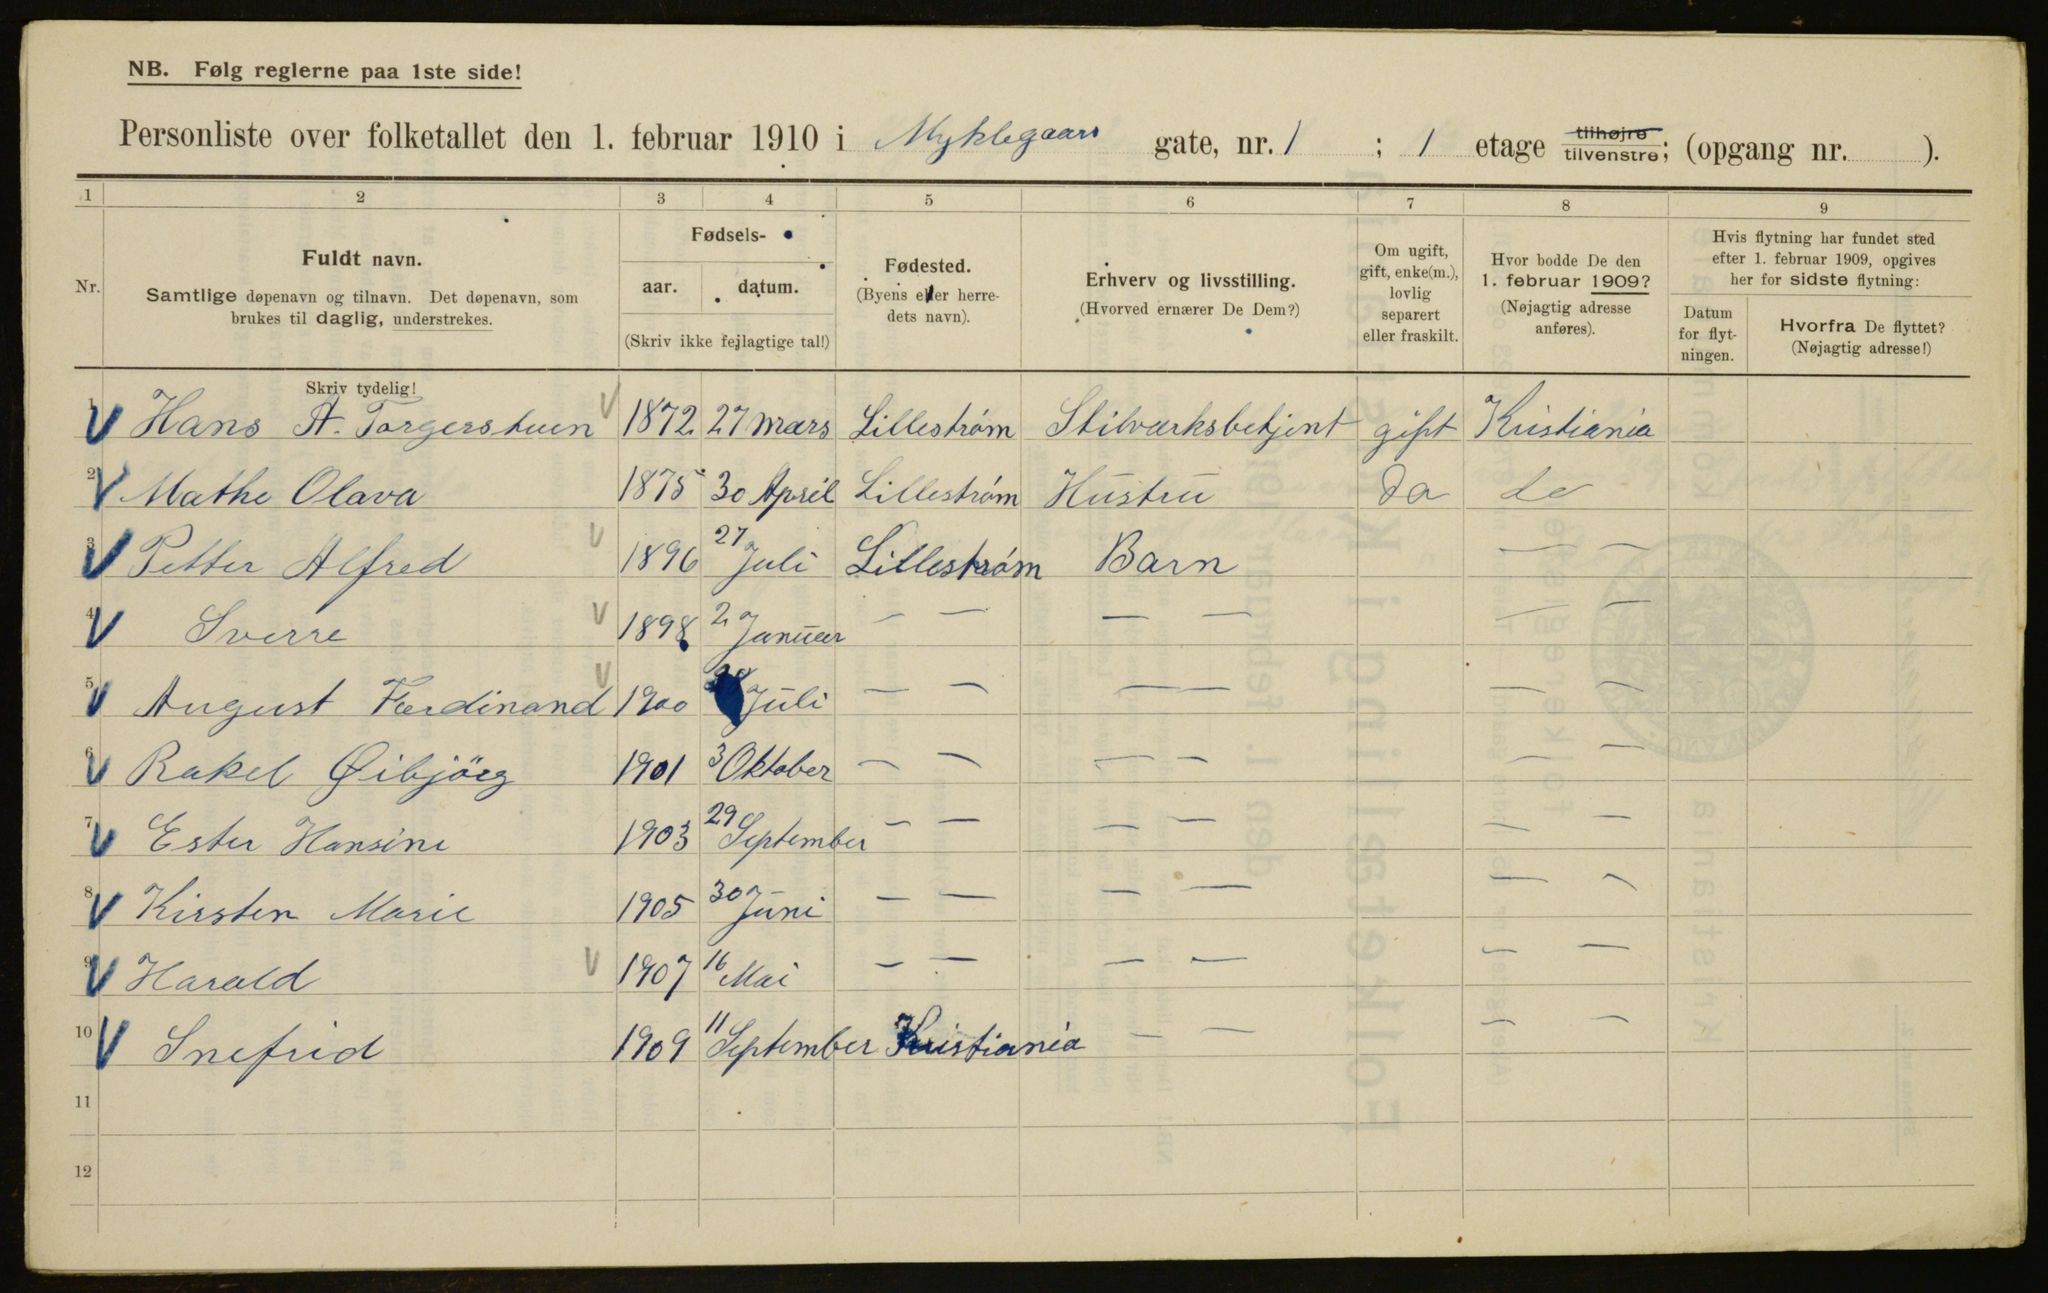 NB. Følg reglerne paa 1ste side!
Personliste over folketallet den 1. februar 1910 i Myklegaars gate, nr. 1 ; 1 etage tilhøjre tilvenstre; (opgang nr. ).
1 2 3 4 5 6 7 8 9
Nr.
Fuldt navn.
Samtlige døpenavn og tilnavn. Det døpenavn, som
brukes til daglig, understrekes.
Fødsels-
aar. datum.
(Skriv ikke fejlagtige tal!)
Fødested.
(Byens eller herre-
dets navn).
Erhverv og livsstilling.
(Hvorved ernærer De Dem?)
Om ugift,
gift, enke(m.),
lovlig
separert
eller fraskilt.
Hvor bodde De den
1. februar 1909?
(Nøjagtig adresse
anføres).
Hvis flytning har fundet sted
efter 1. februar 1909, opgives
her for sidste flytning:
Datum
for flyt-
ningen.
Hvorfra De flyttet?
(Nøjagtig adresse!)
Skriv tydelig!
1 V Hans A. Torgerstuen V 1872 27 Mærs Lillestrøm Stilværksbetjent gift Kristiania
2 V Mathe Olava 1875 30 April Lillestrøm Hustru Do do
3 V Petter Alfred V 1896 27 Juli Lillestrøm Barn — —
4 V Sverre V 1898 2 Januar — — — — — —
5 V August Ferdinand V 1900 Juli — — — — — —
6 V Rakel Øibjörg 1901 3 Oktober — — — — — —
7 V Ester Hansine 1903 29 September — — — — — —
8 V Kirsten Marie 1905 30 Juni — — — — — —
9 V Harald V 1907 16 Mai — — — — — —
10 V Snefrid 1909 11 September Kristiania — — — —
11
12